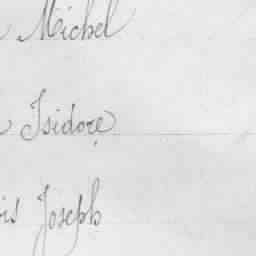 Michel
Isidore
Joseph